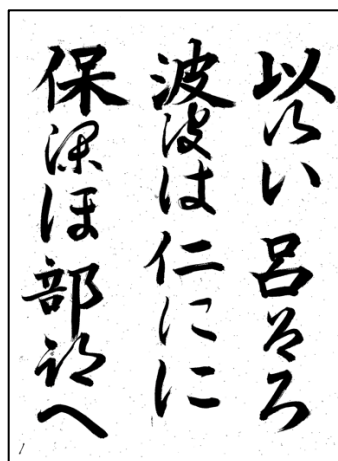 以以い呂呂ろ
波波は仁にに
保保ほ部部へ